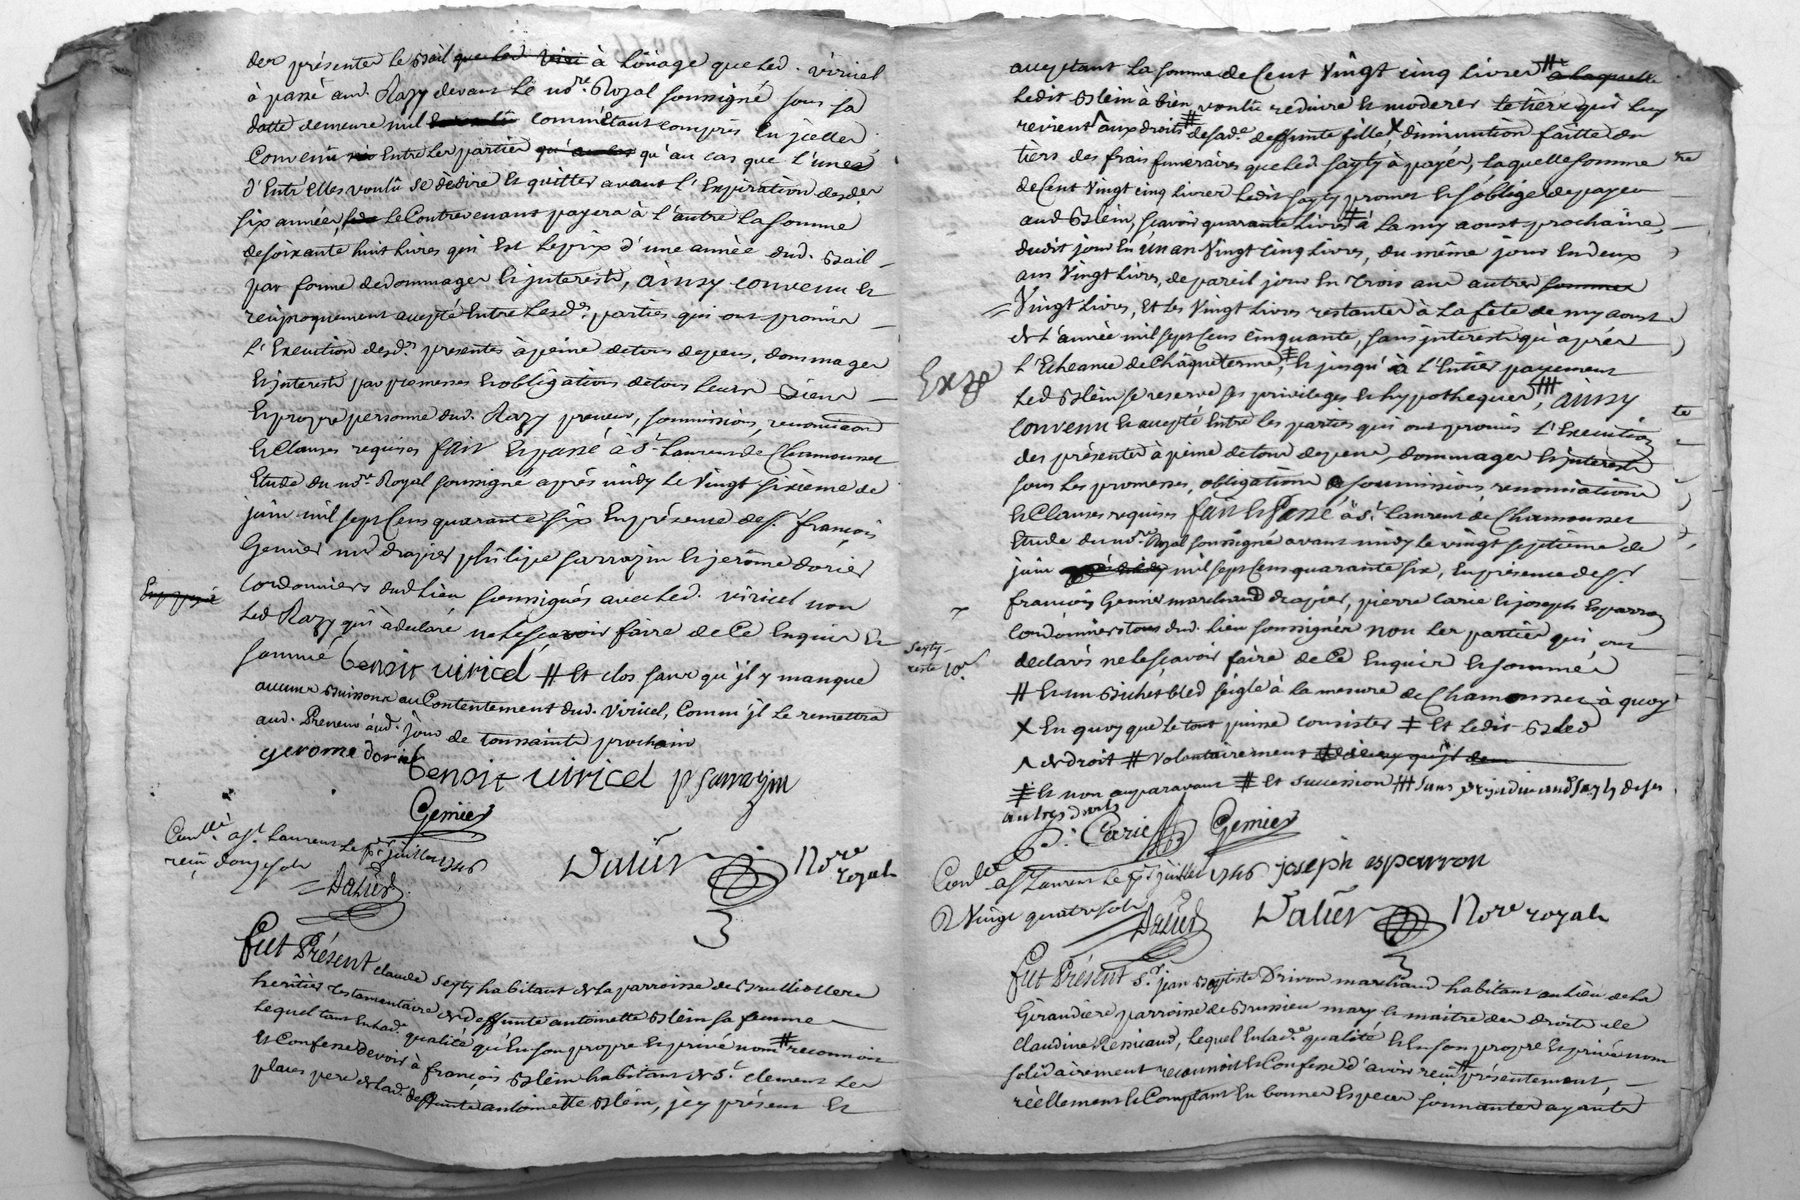 des présentes le Bail à loüage que led. viricel
à passé aud. Razy devant le no.re Royal soussigné sous sa
datte demeure nul comm'étant compris en jcelles
Convenû Entre les parties qu'au cas que l'une
d'Entr'Elles voulû se dédire et quitter avant l'Expiration desd.
six années, le Contrevenant payera à l'autre la somme
de soixante huit livres qui Est le prix d'une année dud. Bail
par forme de dommages et jnterests, ainsy convenu et
reciproquement accepté Entre lesd. parties qui ont promis
l'Execution desd. presentes à peine de tous depens, dommages
et jnterests par promesses et obligations de tous leurs Biens
et propre personne dud. Razy preneur, soumissions, renonciaons
et Clauses requises fait et passé à St. Laurent de Chamousset
Etude du no.re Royal soussigné aprés midy le Vingt sixieme de
juin mil sept Cens quarante six En présence de s. françois
Gemier md drapier philipe sarrazin et jerôme dorier
cordonniers dud. lieu soussignés avec led. viricel non
led Razy qui à declaré ne le sçavoir faire de Ce Enquis et
sommé Benoit viricel # Et clos sans qu'jl y manque
aucuns Buissons au Contentement dud. viricel, Comm'jl le remettra
aud. Preneur aud. jour de toussaints prochain
gerome dorier Benoit viricel p sarrazin
Gemier
Conllé a St. Laurent le pr. juillet 1746
reçu douze sols
Dalier
Dalier No.re royal
Fut Présent claude Sayty habitant de la parroisse de Brullioles
heritier testamentaire de deffunte antoinette Blein sa femme
lequel tant En lad. qualité qu'En son propre et privé nom # reconnois
et Confesse devoir à françois Blein habitant de St. clement les
places pere de lad. deffunte antoinette Blein, jcy présent et
acceptant la somme de Cent Vingt cinq livres # a laquelle
ledit Blein à bien voulû reduire et moderer le tiers qui luy
revient ^ aux droits # de sad.e deffunte fille, X diminution faitte du
tiers des frais funeraires que led sayty à payés, laquelle somme
de Cent Vingt cinq livres ledit sayty promet et s'oblige de payer
aud Blein, sçavoir quarante livres # à la my aoust prochaine,
dudit jour En un an Vingt Cinq livres, du même jour En deux
ans Vingt livres, de pareil jour En trois ans autres sommes
Vingt livres, et les Vingt livres restantes à la fete de my aoust
de l'année mil sept cens cinquante, sans jnterests qu'aprés
l'Echeance de Châque terme, # et jusqu'à l'Entier payement
Exp
led Blein se reserve ses privileges et hypotheques, ainsy
convenu et accepté Entre les parties qui ont promis l'Execution
des présentes à peine de tous depens, dommages et jnterests
sous les promesses, obligations soumissions renonciations
et Clauses requises fait et Passé à St. laurent de Chamousset
Etude du no.re Royal soussigné avant midy le vingt septieme de
juin mil sept Cens quarante six, En présence de s.
françois Gemier marchand drapier, pierre carie et joseph Esparron
cordonniers tous dud. lieu soussignés non les parties qui ont
declaré ne le sçavoir faire de Ce Enquis et sommés
Sayty
reste 10
# Et un Bichet bled seigle à la mesure de Chamousset à quoy
X En quoy que le tout puisse consister ‡ Et ledit Bled
^ de droit # volontairement
‡ et non auparavant # et succession sans prejudice aud Sayty de ses
autres droits
P. Carie Gemier
Conllé a St Laurent le pr juillet 1746 joseph esparron
R Vingt quatre sols
Dalier
Dalier No.re royal
Fut Présent s. jean Baptiste Drivon marchand habitant au lieu de la
Girandiere parroisse de Brussieu mary le maitre des droits de
claudine Renicaud, lequel En lad.e qualité et En son propre et privé nom
solidairement reconnoit et Confesse d'avoir reçu # présentement,
réellement et Comptant En bonnes Especes sonnantes ayants